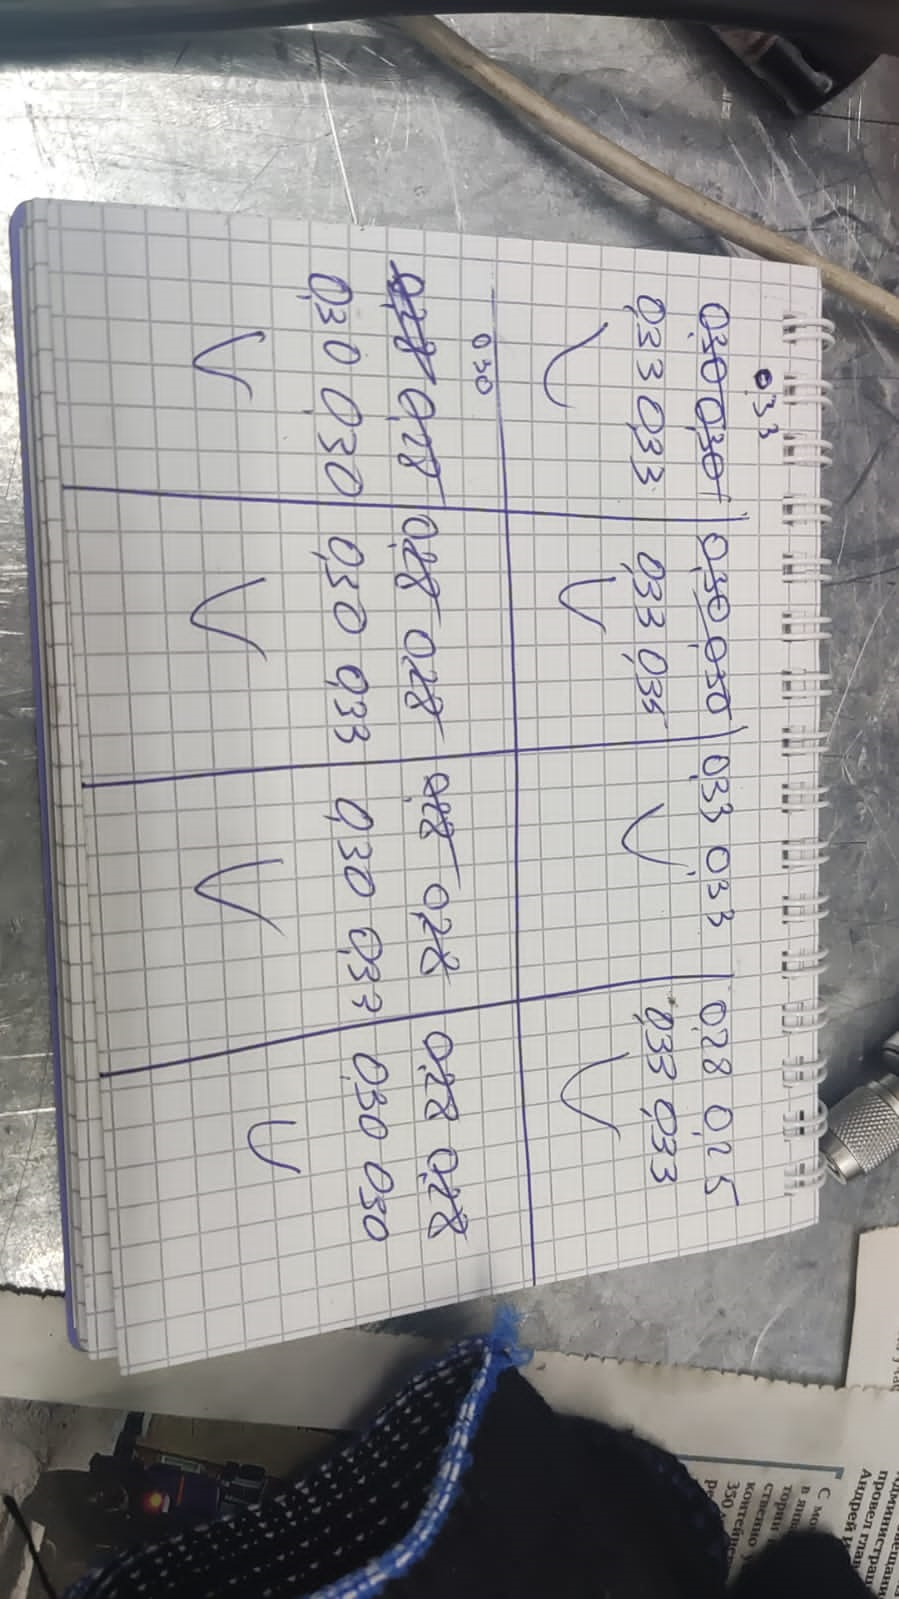 0,33
0,30 0,30 0,30 0,30 0,33 0,33 0,28 0,25
0,33 0,33 0,33 0,35 0,33 0,33
0 30
0,28 0,28 0,28 0,28 0,28 0,28 0,28 0,28
0,30 0,30 0,30 0,33 0,30 0,33 0,30 0,30
провел
Андрей
С
в